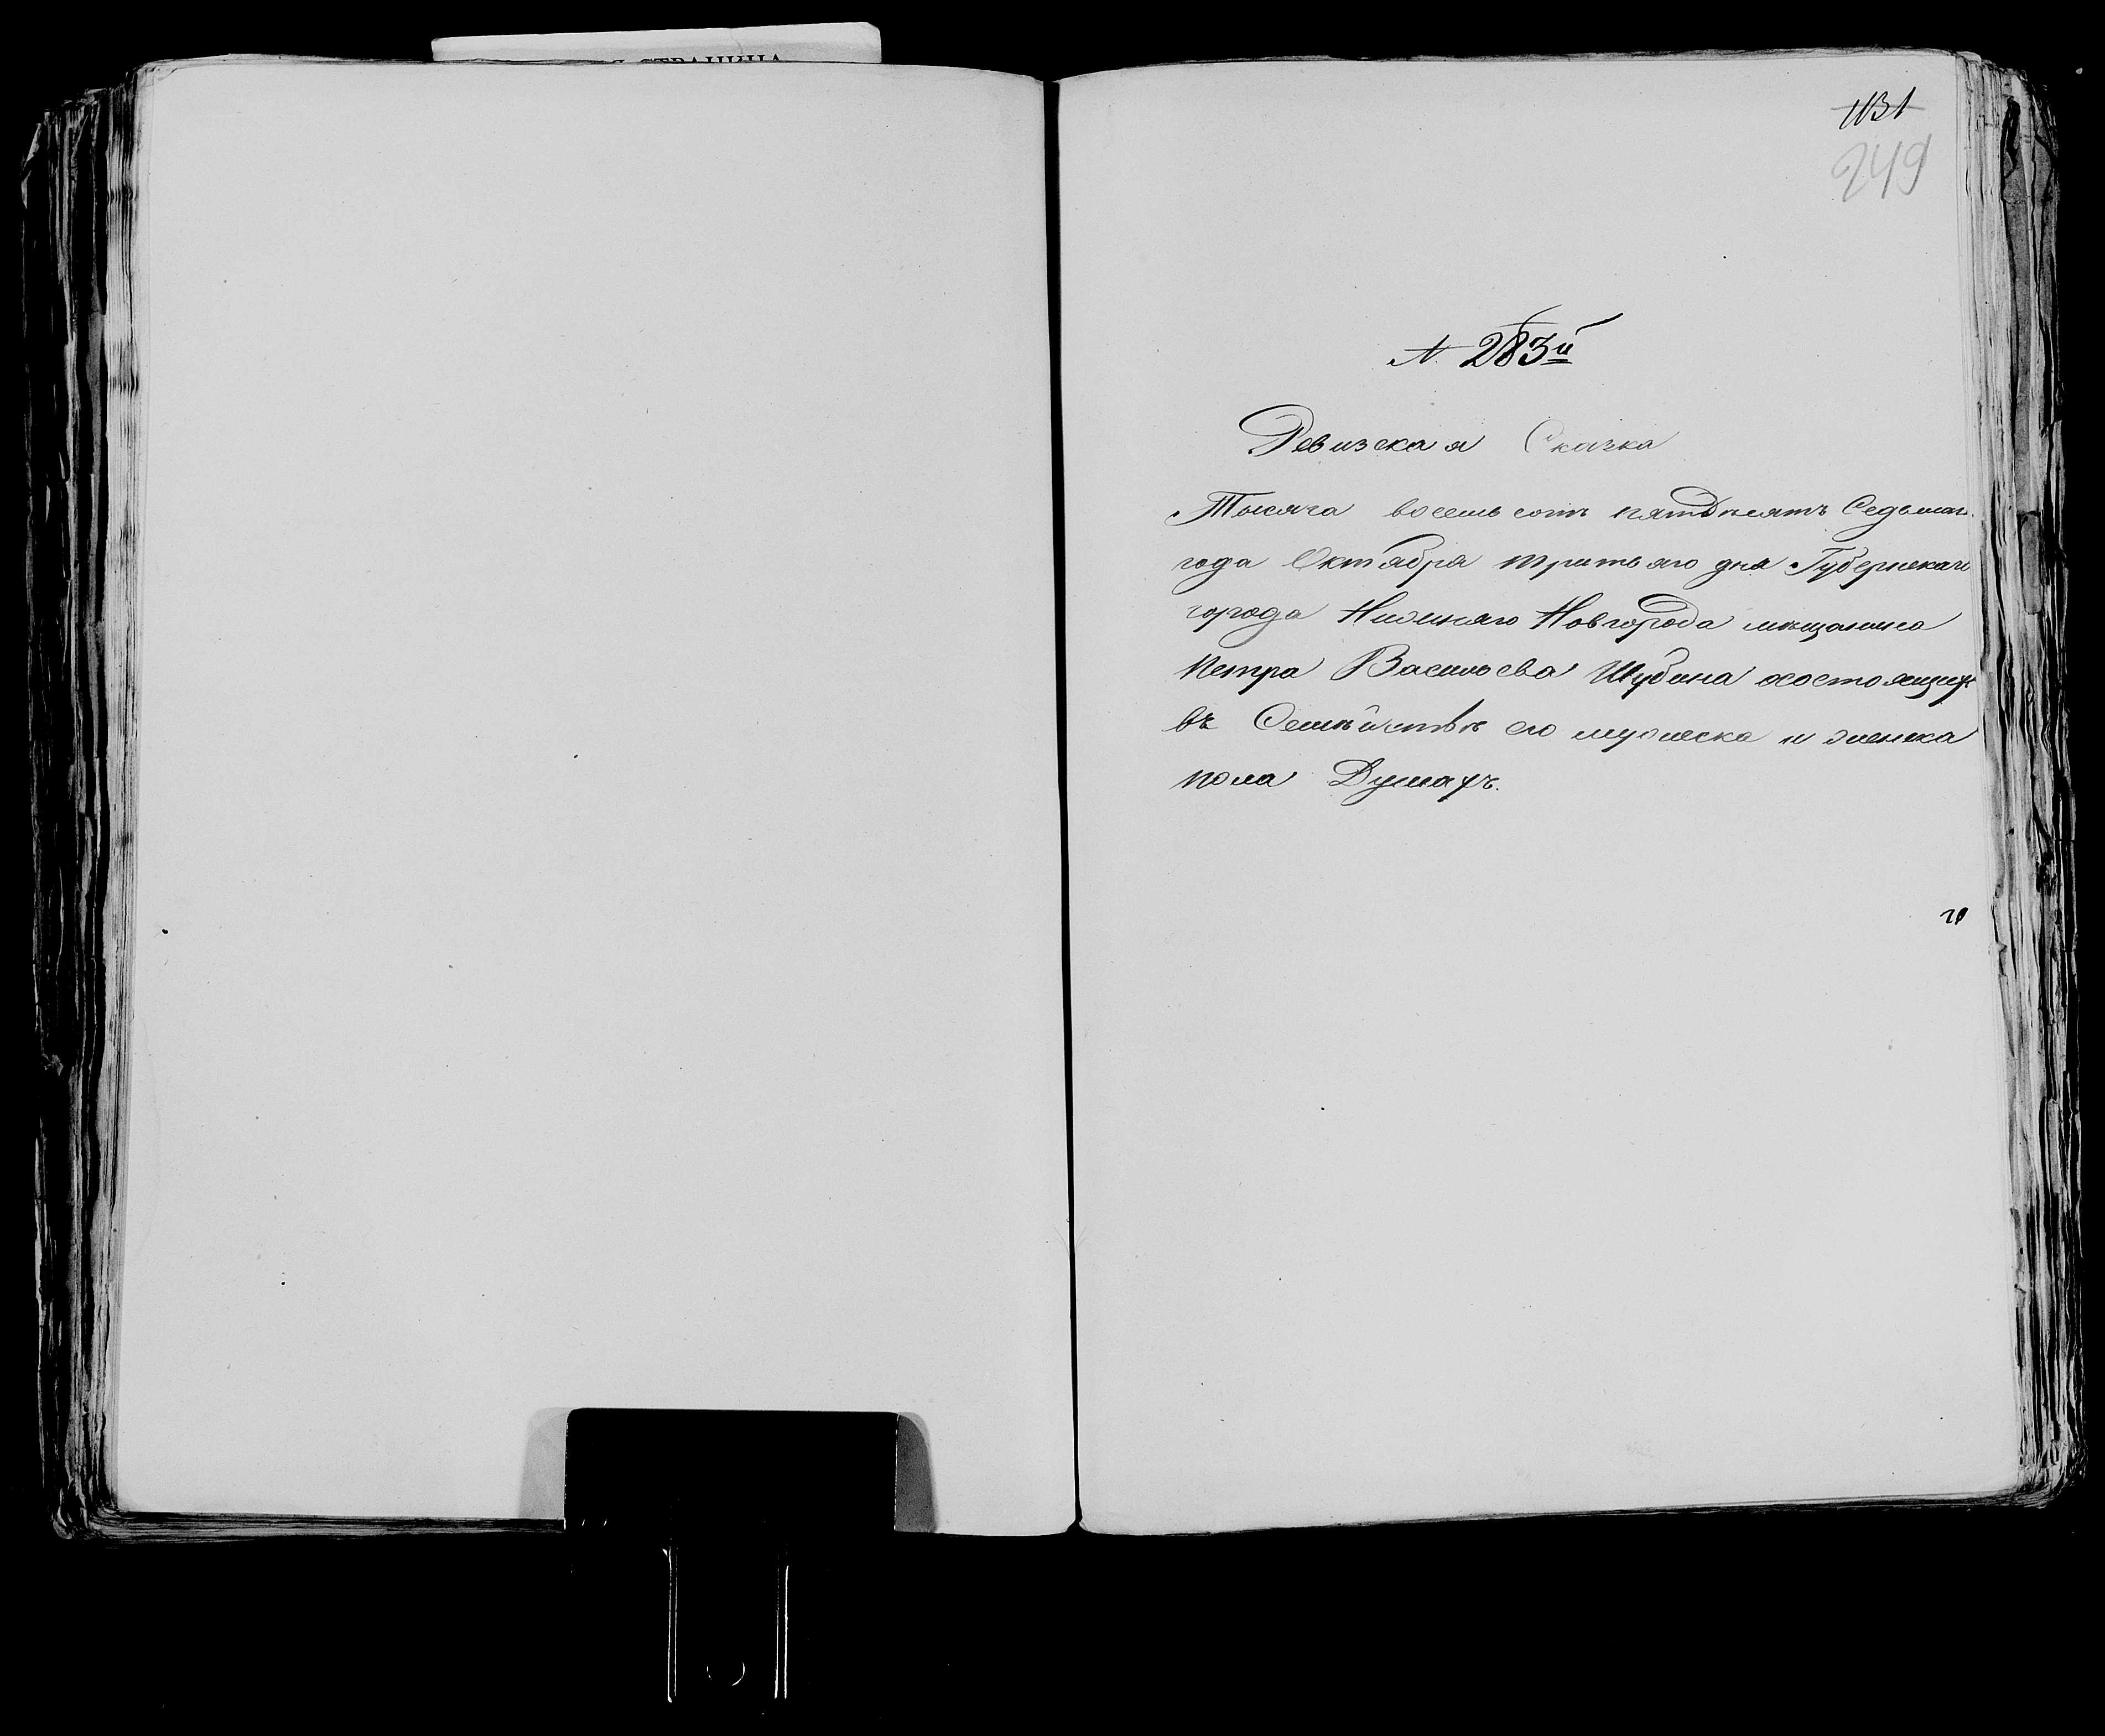 СТРАНИЦА
1131
249
№ 283й
Ревизская Сказка
Тысяча восемь сотъ пятдѣсятъ Седьмаго
года Октября третьяго дня Губернскаго
города Нижняго Новгорода мѣщанина
Петра Васильева Шубина осостоящихъ
въ Семѣйствѣ его мужеска и женска
пола Душахъ.